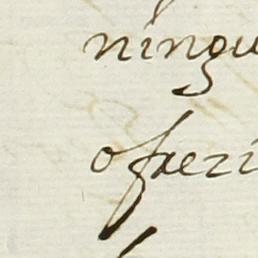 ningu
ofrezi